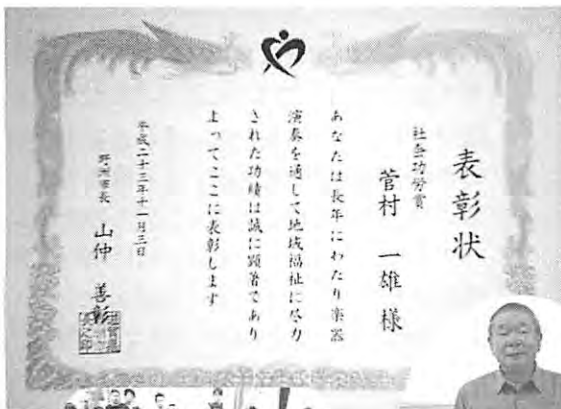 表彰状
社会功労賞
菅村 一雄 様
あなたは長年にわたり楽器
演奏を通して地域福祉に尽力
された功績は誠に顕著であり
よってここに表彰します
平成二十三年十一月三日
野洲市長 山仲 善彰